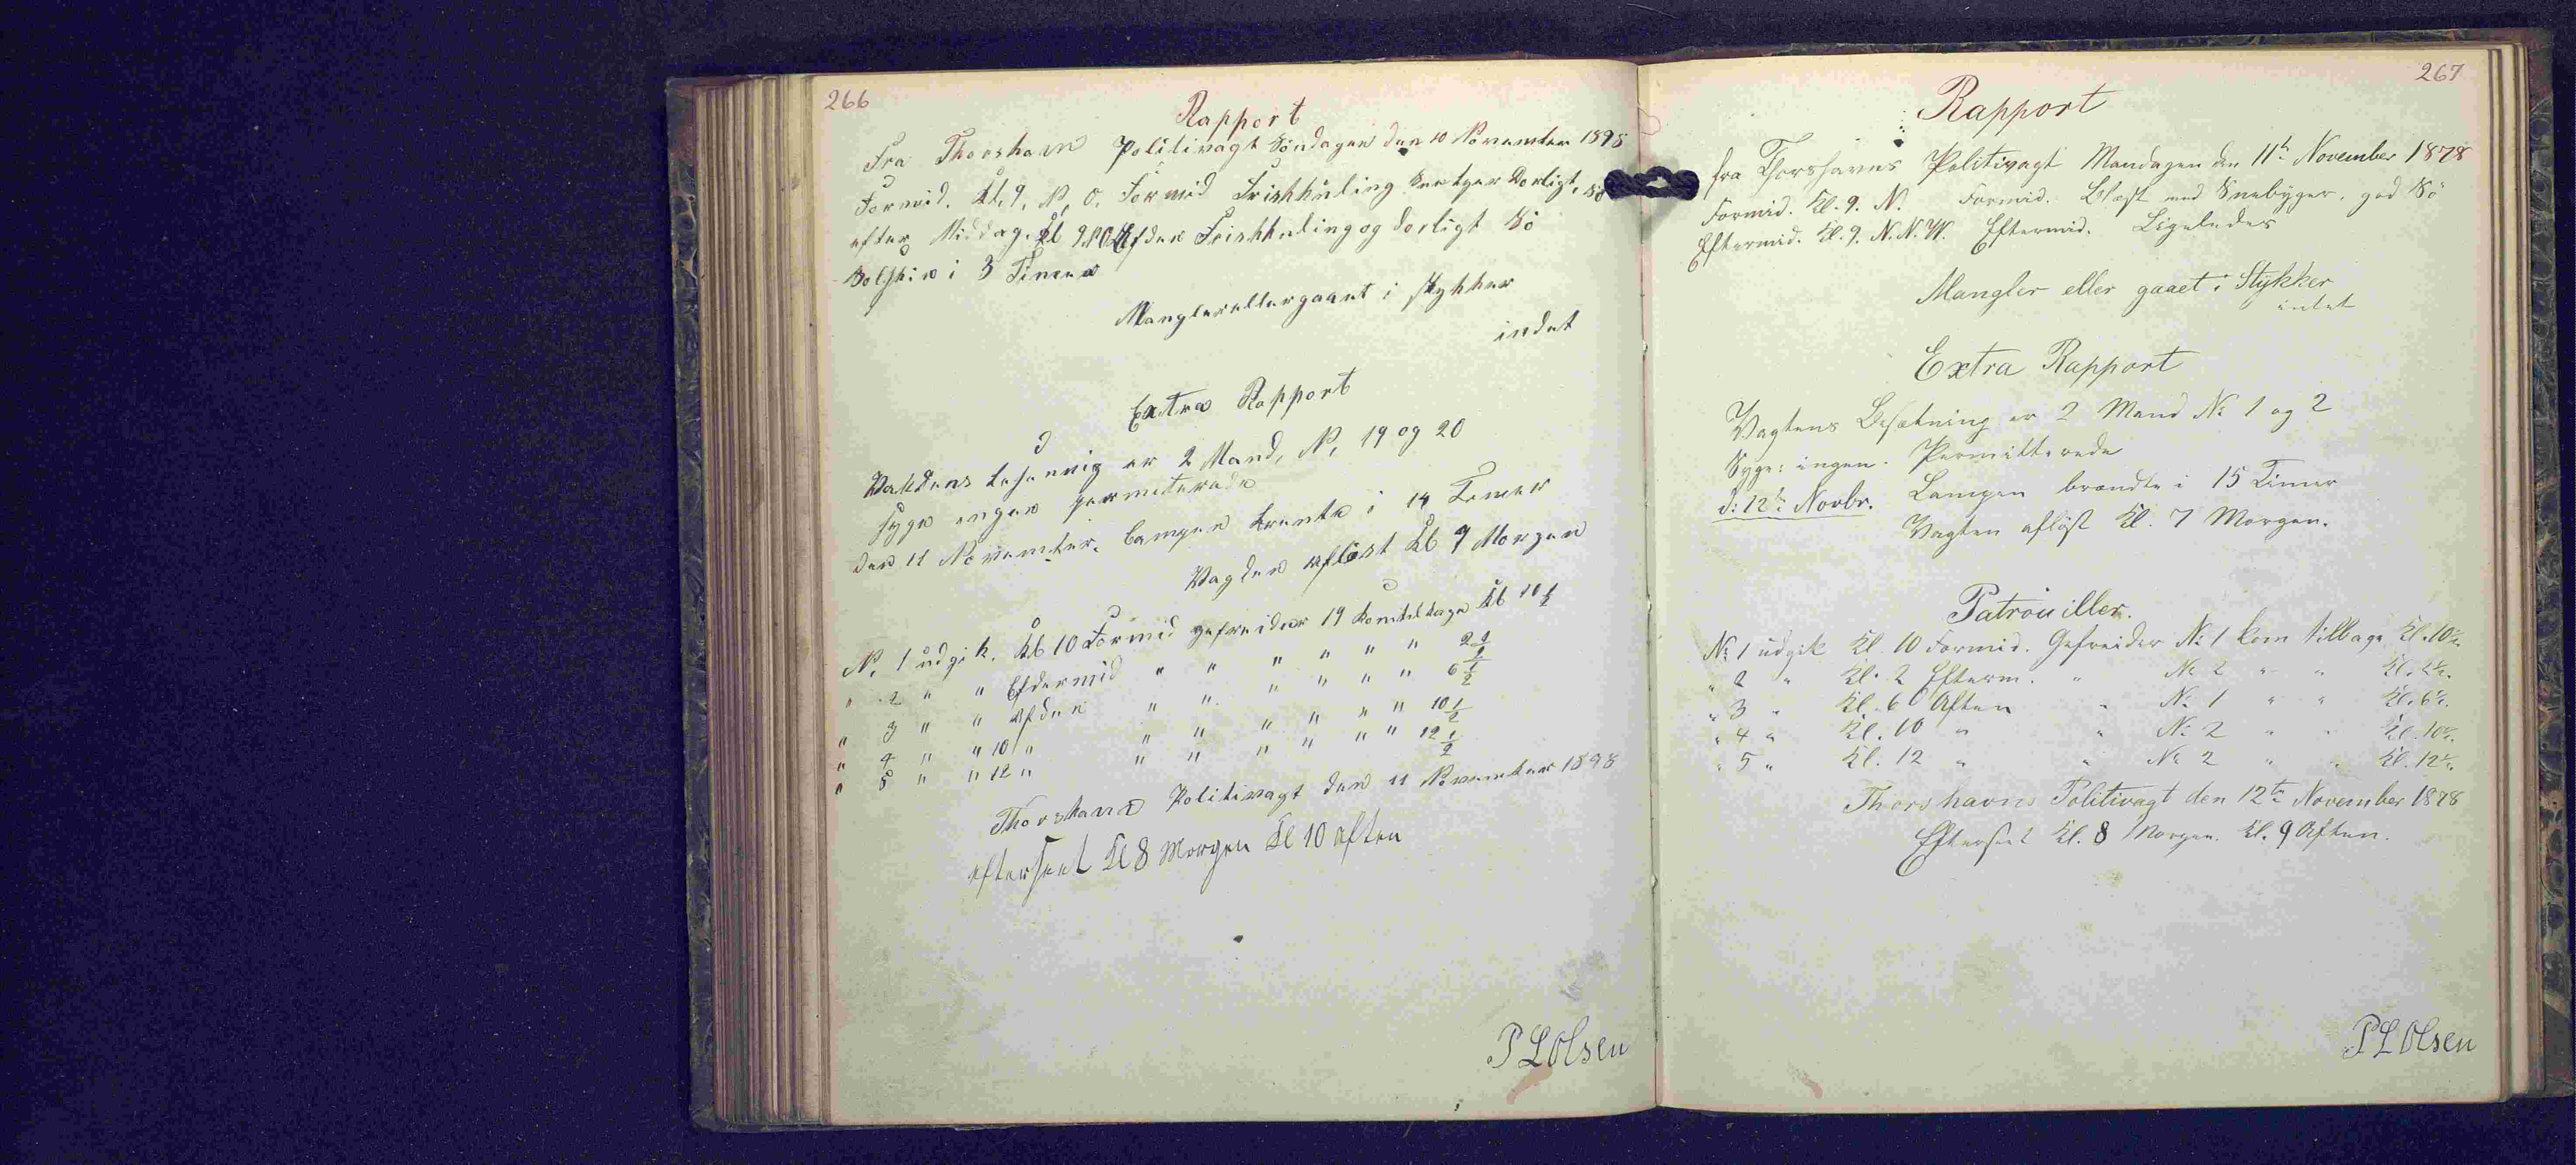 266
Rapport
Fra Thorshavn Politivagt Söndagen den 10 November 1898
Formid. Kl, 9, N, O, Formid Friskkuling Dorligt, Sö
efter Middag. Kl 9 NO Efden Friskkuling og dorligt Sö
Solskin i 3 Timer
Mangler eller gaaet i stykker
indet
Extra Rapport
Vakdens besennig er 2 Mand, N, 19 og 20
syge engen permeterade
den 11 November. Lampen brente i 14 Temer
Vagden aflöst Kl 7 Morgen
N, 1 udgik. Kl 10 Formid gefreider 19 komtilbage Kl 10 1/2
" 2 " " Efdermid " " " " " " 2 1/2
" 3 " " Afden " " " " " " 6 1/2
" 4 " " 10 " " " " " " " 10 1/2
" 5 " " 12 " " " " " " " 12 1/2
Thorshavn Politivagt den 11 November 1898
efterseet Kl 8 Morgen Kl 10 aften
P L Olsen
267
Rapport
fra Thorshavns Politivagt Mandagen den 11te November 1878
Formid. Kl. 9. N. Formid. Blæst med Snebyger, god Sö
Eftermid. Kl. 9. N.N.W. Eftermid. Ligeledes
Mangler eller gaaet i Stykker
intet
Extra Rapport
Vagtens Besætning er 2 Mand No 1 og 2
Syge: ingen. Permitterede
d: 12te Novbr. Lampen brændte i 15 Timer
Vagten aflöst Kl. 7 Morgen.
Patrouiller.
No 1 udgik Kl. 10 Formid. Gefreider No 1 kom tilbage Kl. 10 1/2
" 2 " Kl. 2 Efterm. " No 2 " " Kl. 2 1/2.
" 3 " Kl. 6 Aften " No 1 " " Kl. 6 1/2.
" 4 " Kl. 10 " " No 2 " " Kl. 10 1/2.
" 5 " Kl. 12 " " No 2 " " Kl. 12 1/2.
Thorshavns Politivagt den 12te November 1878
Efterseet Kl. 8 Morgen. Kl. 9 Aften.
P L Olsen